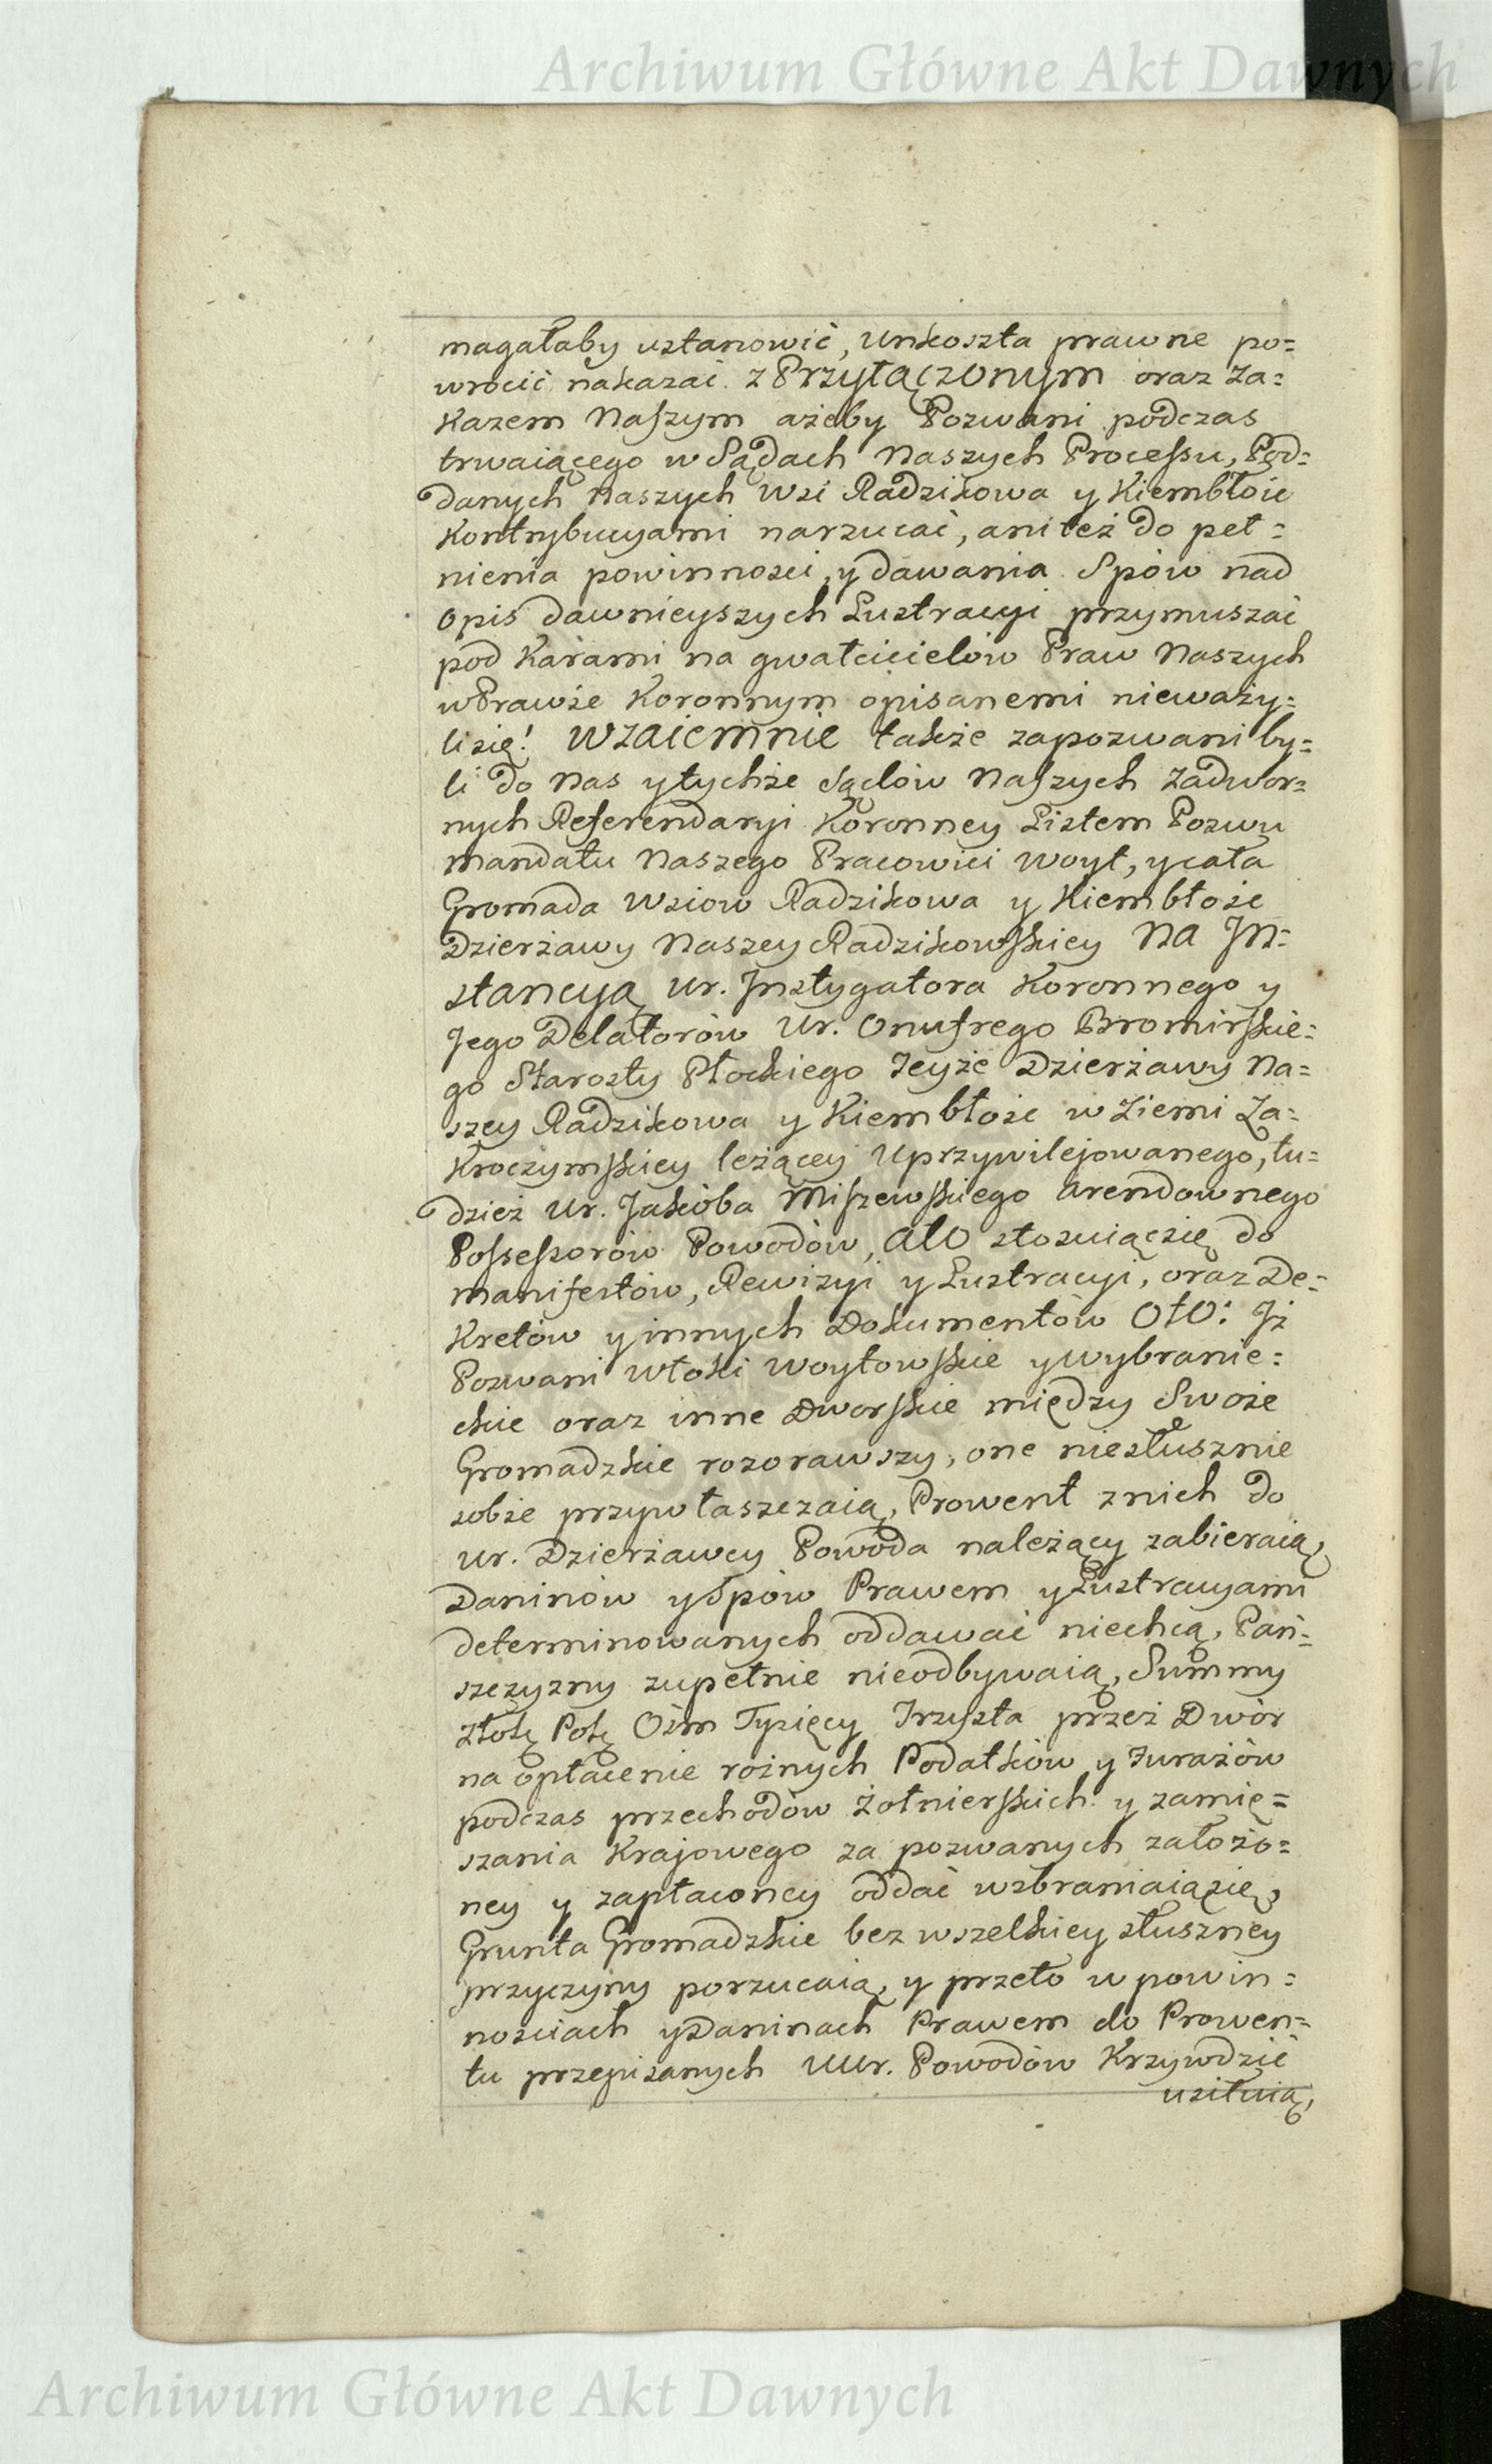 Archiwum Główne Akt Dawnych
magałaby ustanowić, unkoszta prawne po=
wrócić nakazać. z Przyłączonym oraz Za=
kazem Naszym ażeby Pozwani podczas
trwaiącego w Sądach Naszych Processu, Pod=
danych Naszych Wsi Radzikowa y Kiembłoie
Kontrybucyami narzucać, ani też do peł=
nienia powinności, y dawania Spów nad
opis dawnieyszych Lustracyi przymuszać
pod Karami na gwałcicielów Praw Naszych
w Prawie Koronnym opisanemi nieważy=
li się! Wzaiemnie także zapozwani by=
li do Nas y tychże Sądów Naszych Zadwor=
nych Referendaryi Koronney Listem Pozwu
mandatu Naszego Pracowici Woyt, y cała
Gromada Wsiow Radzikowa y Kiembłoże
Dzierżawy Naszey Radzikowskiey Na In=
stancyą Ur. Instygatora Koronnego y
Jego Delatorów Ur. Onufrego Bromirskie=
go Starosty Płockiego Teyże Dzierżawy Na=
szey Radzikowa y Kiembłoże w Ziemi Za=
kroczymskiey leżącey Uprzywilejowanego, tu=
dzież Ur. Jakóba Miszewskiego Arendownego
Possessorów Powodów, Ato stosuiąc się do
manifestów, Rewizyi y Lustracyi, oraz De=
kretów y innych Dokumentów Oto: Iż
Pozwani Włoki Woytowskie y wybranie=
ckie oraz inne Dworskie między Swoie
Gromadzkie rozorawszy, one niesłusznie
sobie przywłaszczaią, Prowent z nich do
Ur. Dzierżawcy Powoda należący zabieraią,
Daninów y Spów Prawem y Lustracyami
determinowanych oddawać niechcą, Pań=
szczyzny zupełnie nieodbywaią, Summy
Złotę Polę Ośm Tysięcy Trzysta przez Dwór
na opłacenie rożnych Podatków y Furażów
podczas przechodów Żołnierskich y zamię=
szania Krajowego za pozwanych założo=
ney y zapłaconey oddać wzbraniaią się,
Grunta Gromadzkie bez wszelkiey słuszney
przyczyny porzucaią, y przeto w powin=
nościach y Daninach Prawem do Prowen=
tu przepisanych UUr. Powodów Krzywdzić
usiłuią,
Archiwum Główne Akt Dawnych